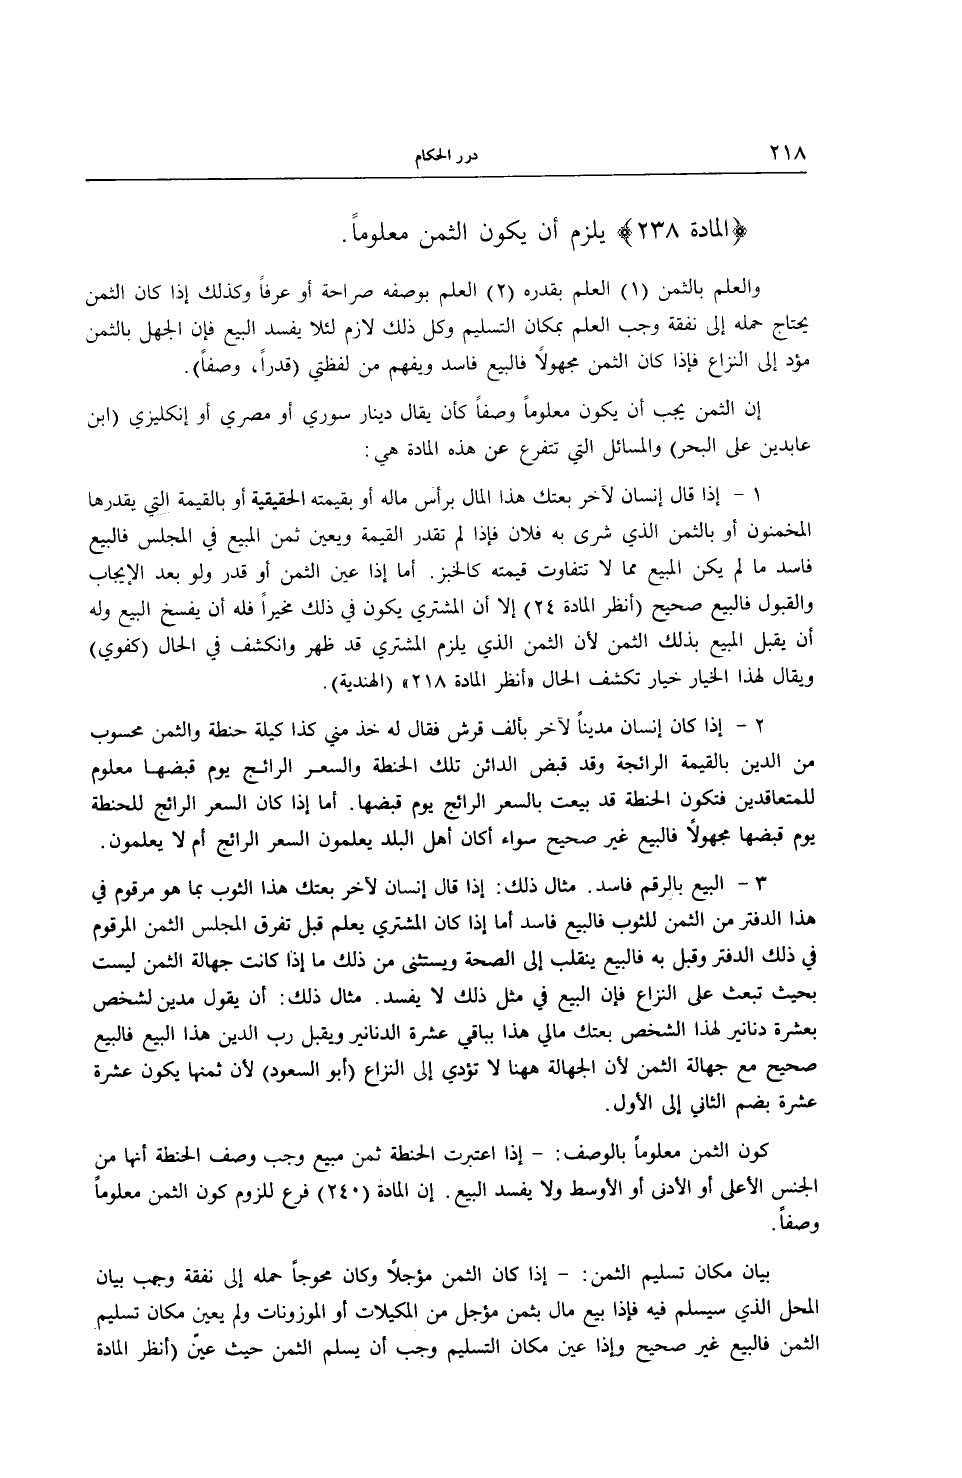 ٢١٨
درر الحكام
﴿المادة ٢٣٨﴾ يلزم أن يكون الثمن معلوماً.
والعلم بالثمن (١) العلم بقدره (٢) العلم بوصفه صراحة أو عرفاً وكذلك إذا كان الثمن
يحتاج حمله إلى نفقة وجب العلم بمكان التسليم وكل ذلك لازم لئلا يفسد البيع فإن الجهل بالثمن
مؤد إلى النزاع فإذا كان الثمن مجهولاً فالبيع فاسد ويفهم من لفظتي (قدراً، وصفاً).
إن الثمن يجب أن يكون معلوماً وصفاً كأن يقال دينار سوري أو مصري أو إنكليزي (ابن
عابدين على البحر) والمسائل التي تتفرع عن هذه المادة هي:
١ - إذا قال إنسان لآخر بعتك هذا المال برأس ماله أو بقيمته الحقيقية أو بالقيمة التي يقدرها
المخمنون أو بالثمن الذي شرى به فلان فإذا لم تقدر القيمة ويعين ثمن المبيع في المجلس فالبيع
فاسد ما لم يكن المبيع مما لا تتفاوت قيمته كالخبز. أما إذا عين الثمن أو قدر ولو بعد الإيجاب
والقبول فالبيع صحيح (أنظر المادة ٢٤) إلا أن المشتري يكون في ذلك مخيراً فله أن يفسخ البيع وله
أن يقبل المبيع بذلك الثمن لأن الثمن الذي يلزم المشتري قد ظهر وانكشف في الحال (كفوي)
ويقال لهذا الخيار خيار تكشف الحال «أنظر المادة ٢١٨» (الهندية).
٢ - إذا كان إنسان مديناً لآخر بألف قرش فقال له خذ مني كذا كيلة حنطة والثمن محسوب
من الدين بالقيمة الرائجة وقد قبض الدائن تلك الحنطة والسعر الرائج يوم قبضها معلوم
للمتعاقدين فتكون الحنطة قد بيعت بالسعر الرائج يوم قبضها. أما إذا كان السعر الرائج للحنطة
يوم قبضها مجهولاً فالبيع غير صحيح سواء أكان أهل البلد يعلمون السعر الرائج أم لا يعلمون.
٣ - البيع بالرقم فاسد. مثال ذلك: إذا قال إنسان لآخر بعتك هذا الثوب بما هو مرقوم في
هذا الدفتر من الثمن للثوب فالبيع فاسد أما إذا كان المشتري يعلم قبل تفرق المجلس الثمن المرقوم
في ذلك الدفتر وقبل به فالبيع ينقلب إلى الصحة ويستثنى من ذلك ما إذا كانت جهالة الثمن ليست
بحيث تبعث على النزاع فإن البيع في مثل ذلك لا يفسد. مثال ذلك: أن يقول مدين لشخص
بعشرة دنانير لهذا الشخص بعتك مالي هذا بباقي عشرة الدنانير ويقبل رب الدين هذا البيع فالبيع
صحيح مع جهالة الثمن لأن الجهالة ههنا لا تؤدي إلى النزاع (أبو السعود) لأن ثمنها يكون عشرة
عشرة بضم الثاني إلى الأول.
كون الثمن معلوماً بالوصف: - إذا اعتبرت الحنطة ثمن مبيع وجب وصف الحنطة أنها من
الجنس الأعلى أو الأدنى أو الأوسط ولا يفسد البيع. إن المادة (٢٤٠) فرع للزوم كون الثمن معلوماً
وصفاً.
بيان مكان تسليم الثمن: - إذا كان الثمن مؤجلاً وكان محوجاً حمله إلى نفقة وجب بيان
المحل الذي سيسلم فيه فإذا بيع مال بثمن مؤجل من المكيلات أو الموزونات ولم يعين مكان تسليم
الثمن فالبيع غير صحيح وإذا عين مكان التسليم وجب أن يسلم الثمن حيث عيّن (أنظر المادة